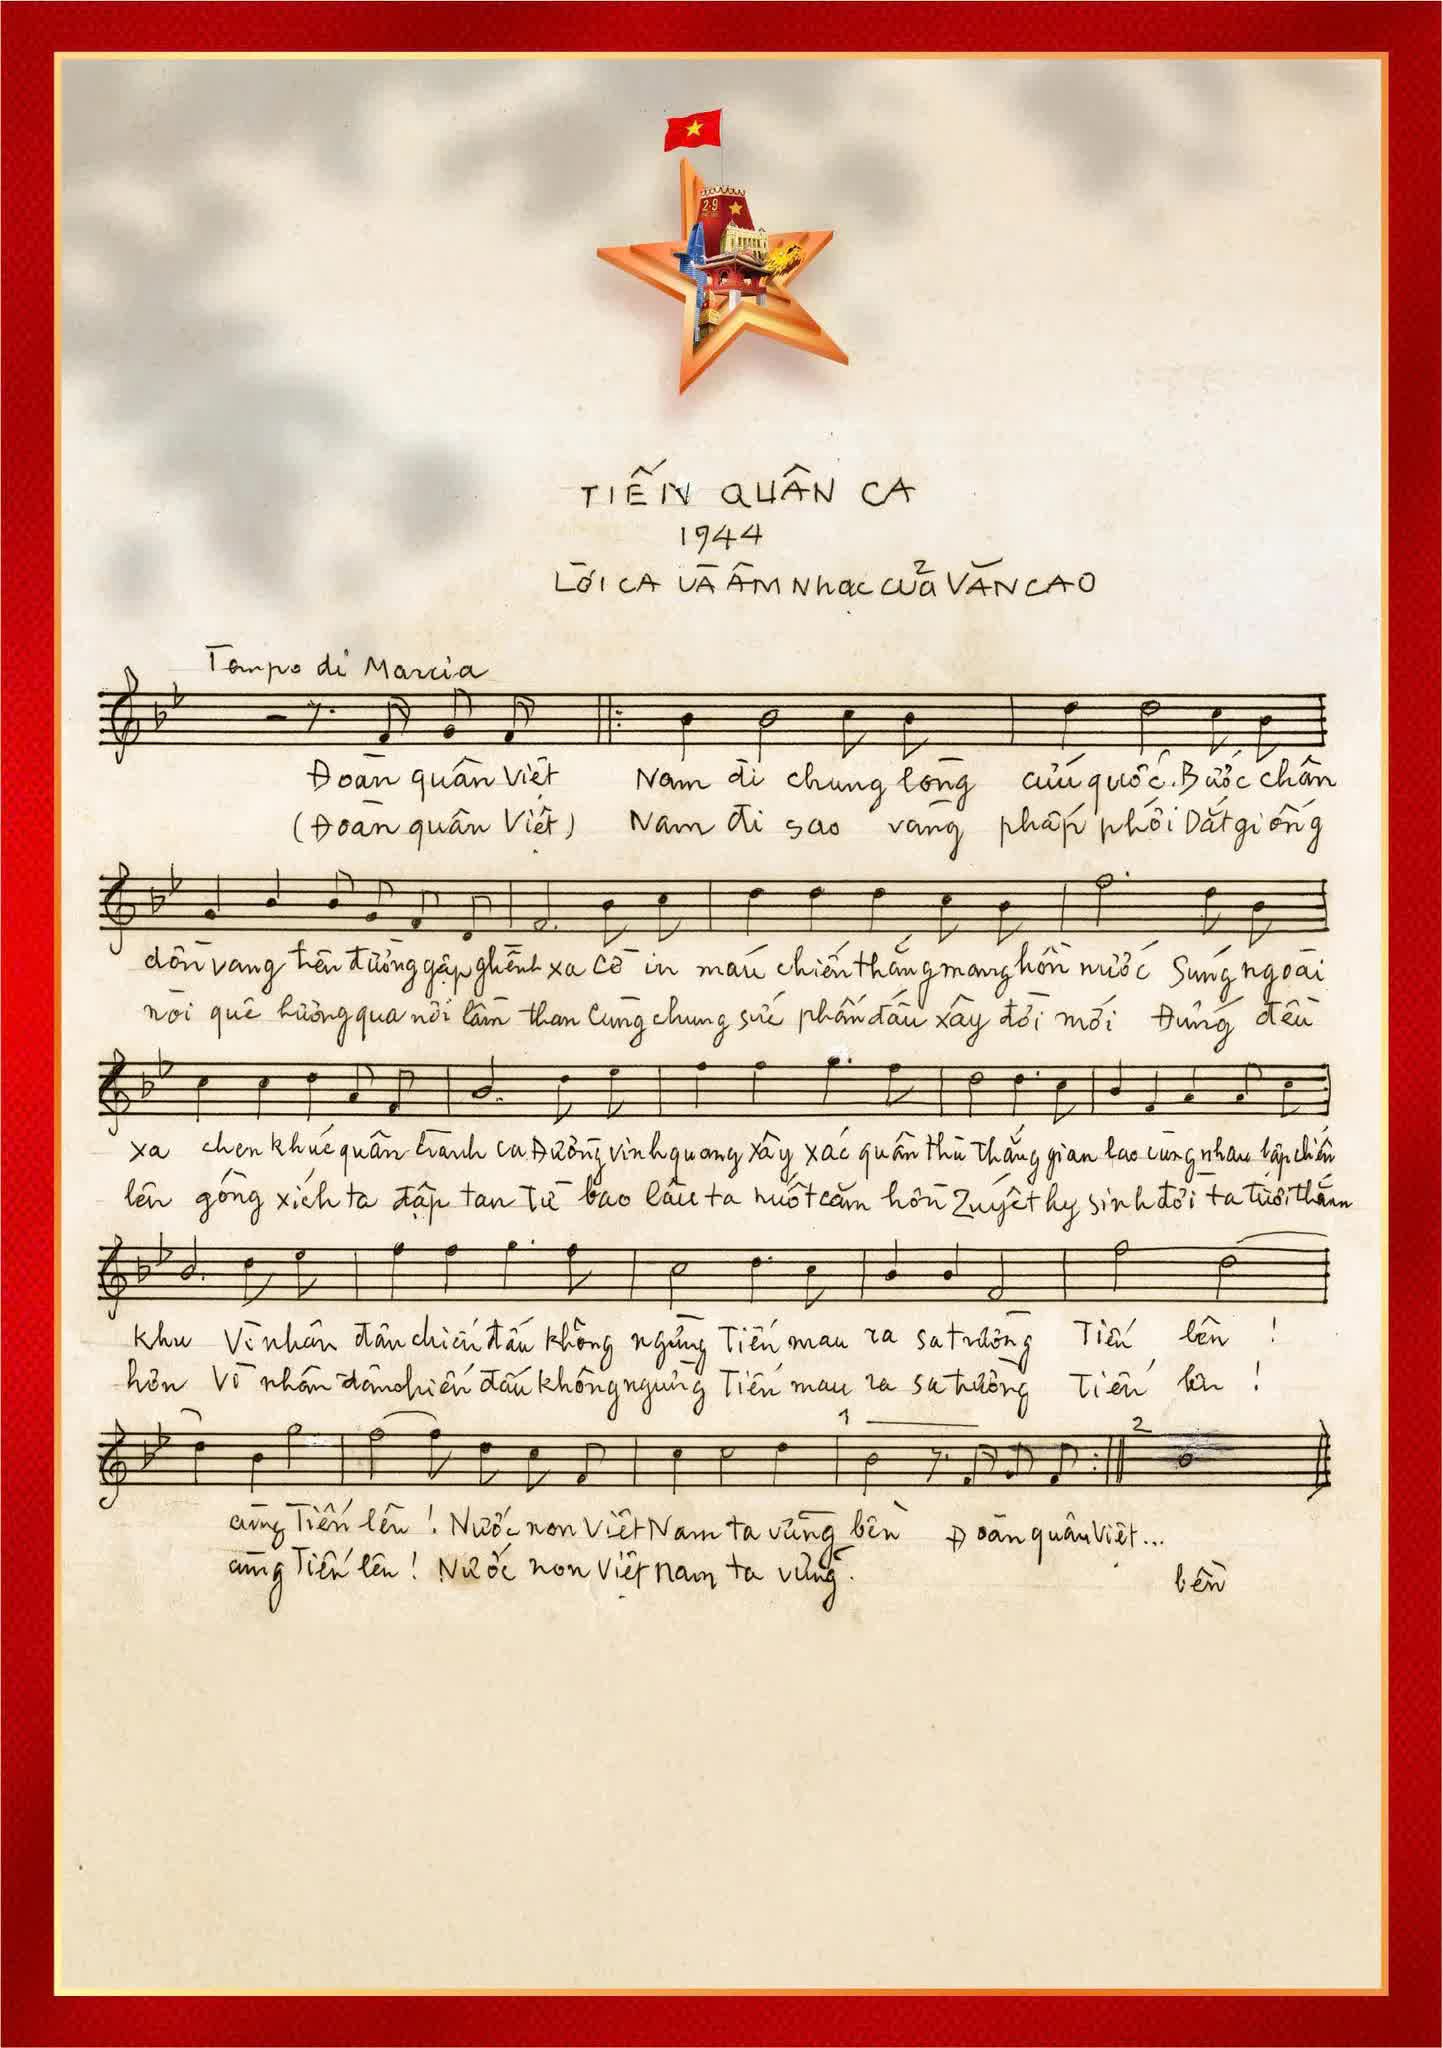 2-9
TIẾN QUÂN CA
1944
LỜI CA VÀ ÂM NHẠC CỦA VĂN CAO
Tempo di Marcia
Đoàn quân Việt Nam đi chung lòng cứu quốc. Bước chân
(Đoàn quân Việt) Nam đi sao vàng phấp phới Dắt giống
dồn vang trên đường gập ghềnh xa Cờ in máu chiến thắng mang hồn nước Súng ngoài
nòi quê hương qua nơi lầm than Cùng chung sức phấn đấu xây đời mới Đứng đều
xa chen khúc quân hành ca Đường vinh quang xây xác quân thù Thắng gian lao cùng nhau lập chiến
lên gông xích ta đập tan Từ bao lâu ta nuốt căm hờn Quyết hy sinh đời ta tươi thắm
khu Vì nhân dân chiến đấu không ngừng Tiến mau ra sa trường Tiến lên !
hơn Vì nhân dân chiến đấu không ngừng Tiến mau ra sa trường Tiến lên !
1 2
cùng Tiến lên ! Nước non Việt Nam ta vững bền Đoàn quân Việt...
cùng Tiến lên ! Nước non Việt nam ta vững.
bền